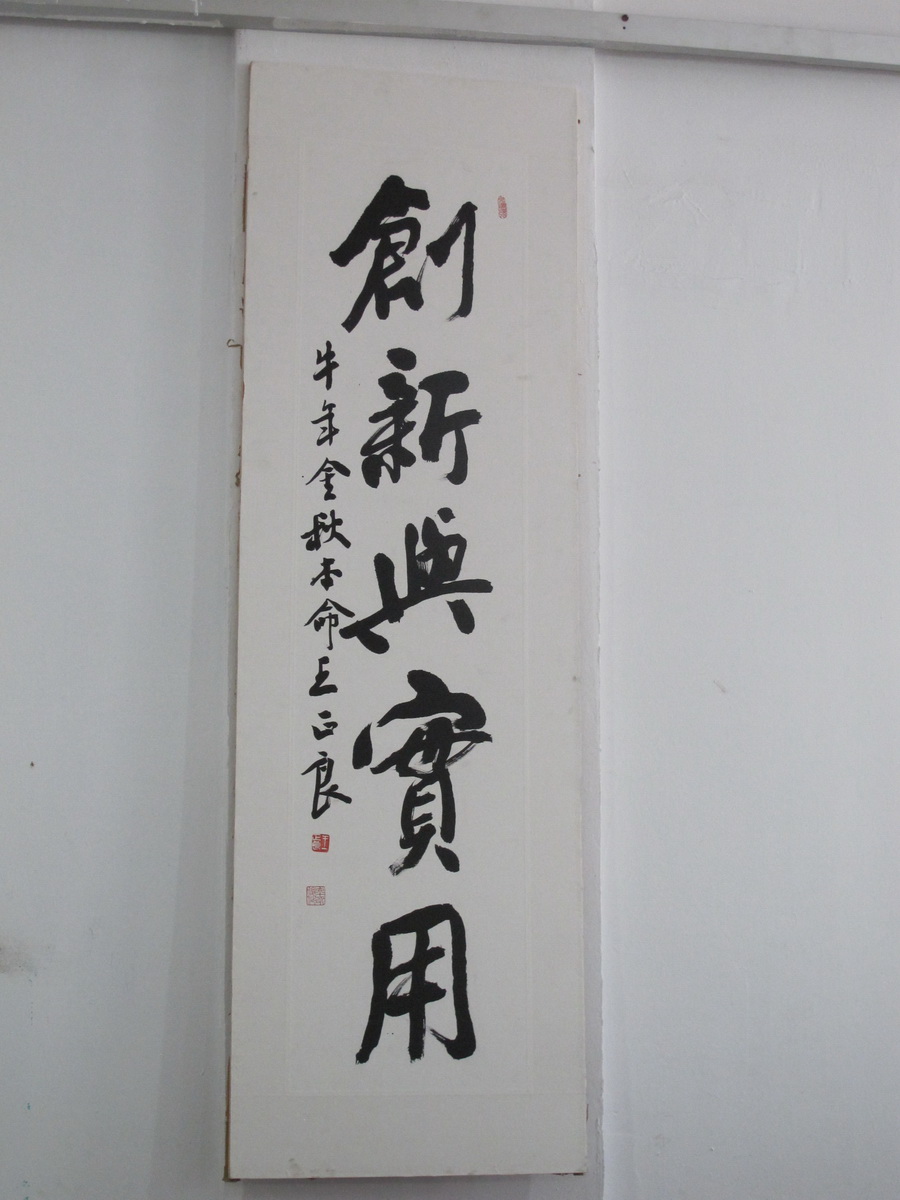 創新與實用
牛年金秋本命王正良